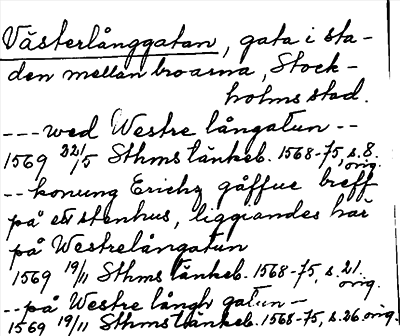 Västerlånggatan, gata i sta-
den mellan broarna, Stock-
holms stad.
--- wed Westre långatun --
1569 22/5 Sthms tänkeb. 1568-75, s. 8. orig.
-- konung Erichz gåffue breff
på ett stenhus, liggiandes här
på Westrelångatun
1569 19/11 Sthms tänkeb. 1568-75, s. 21. orig.
-- på Westre långh gatun -
1569 19/11 Sthms tänkeb. 1568-75, s. 26 orig.